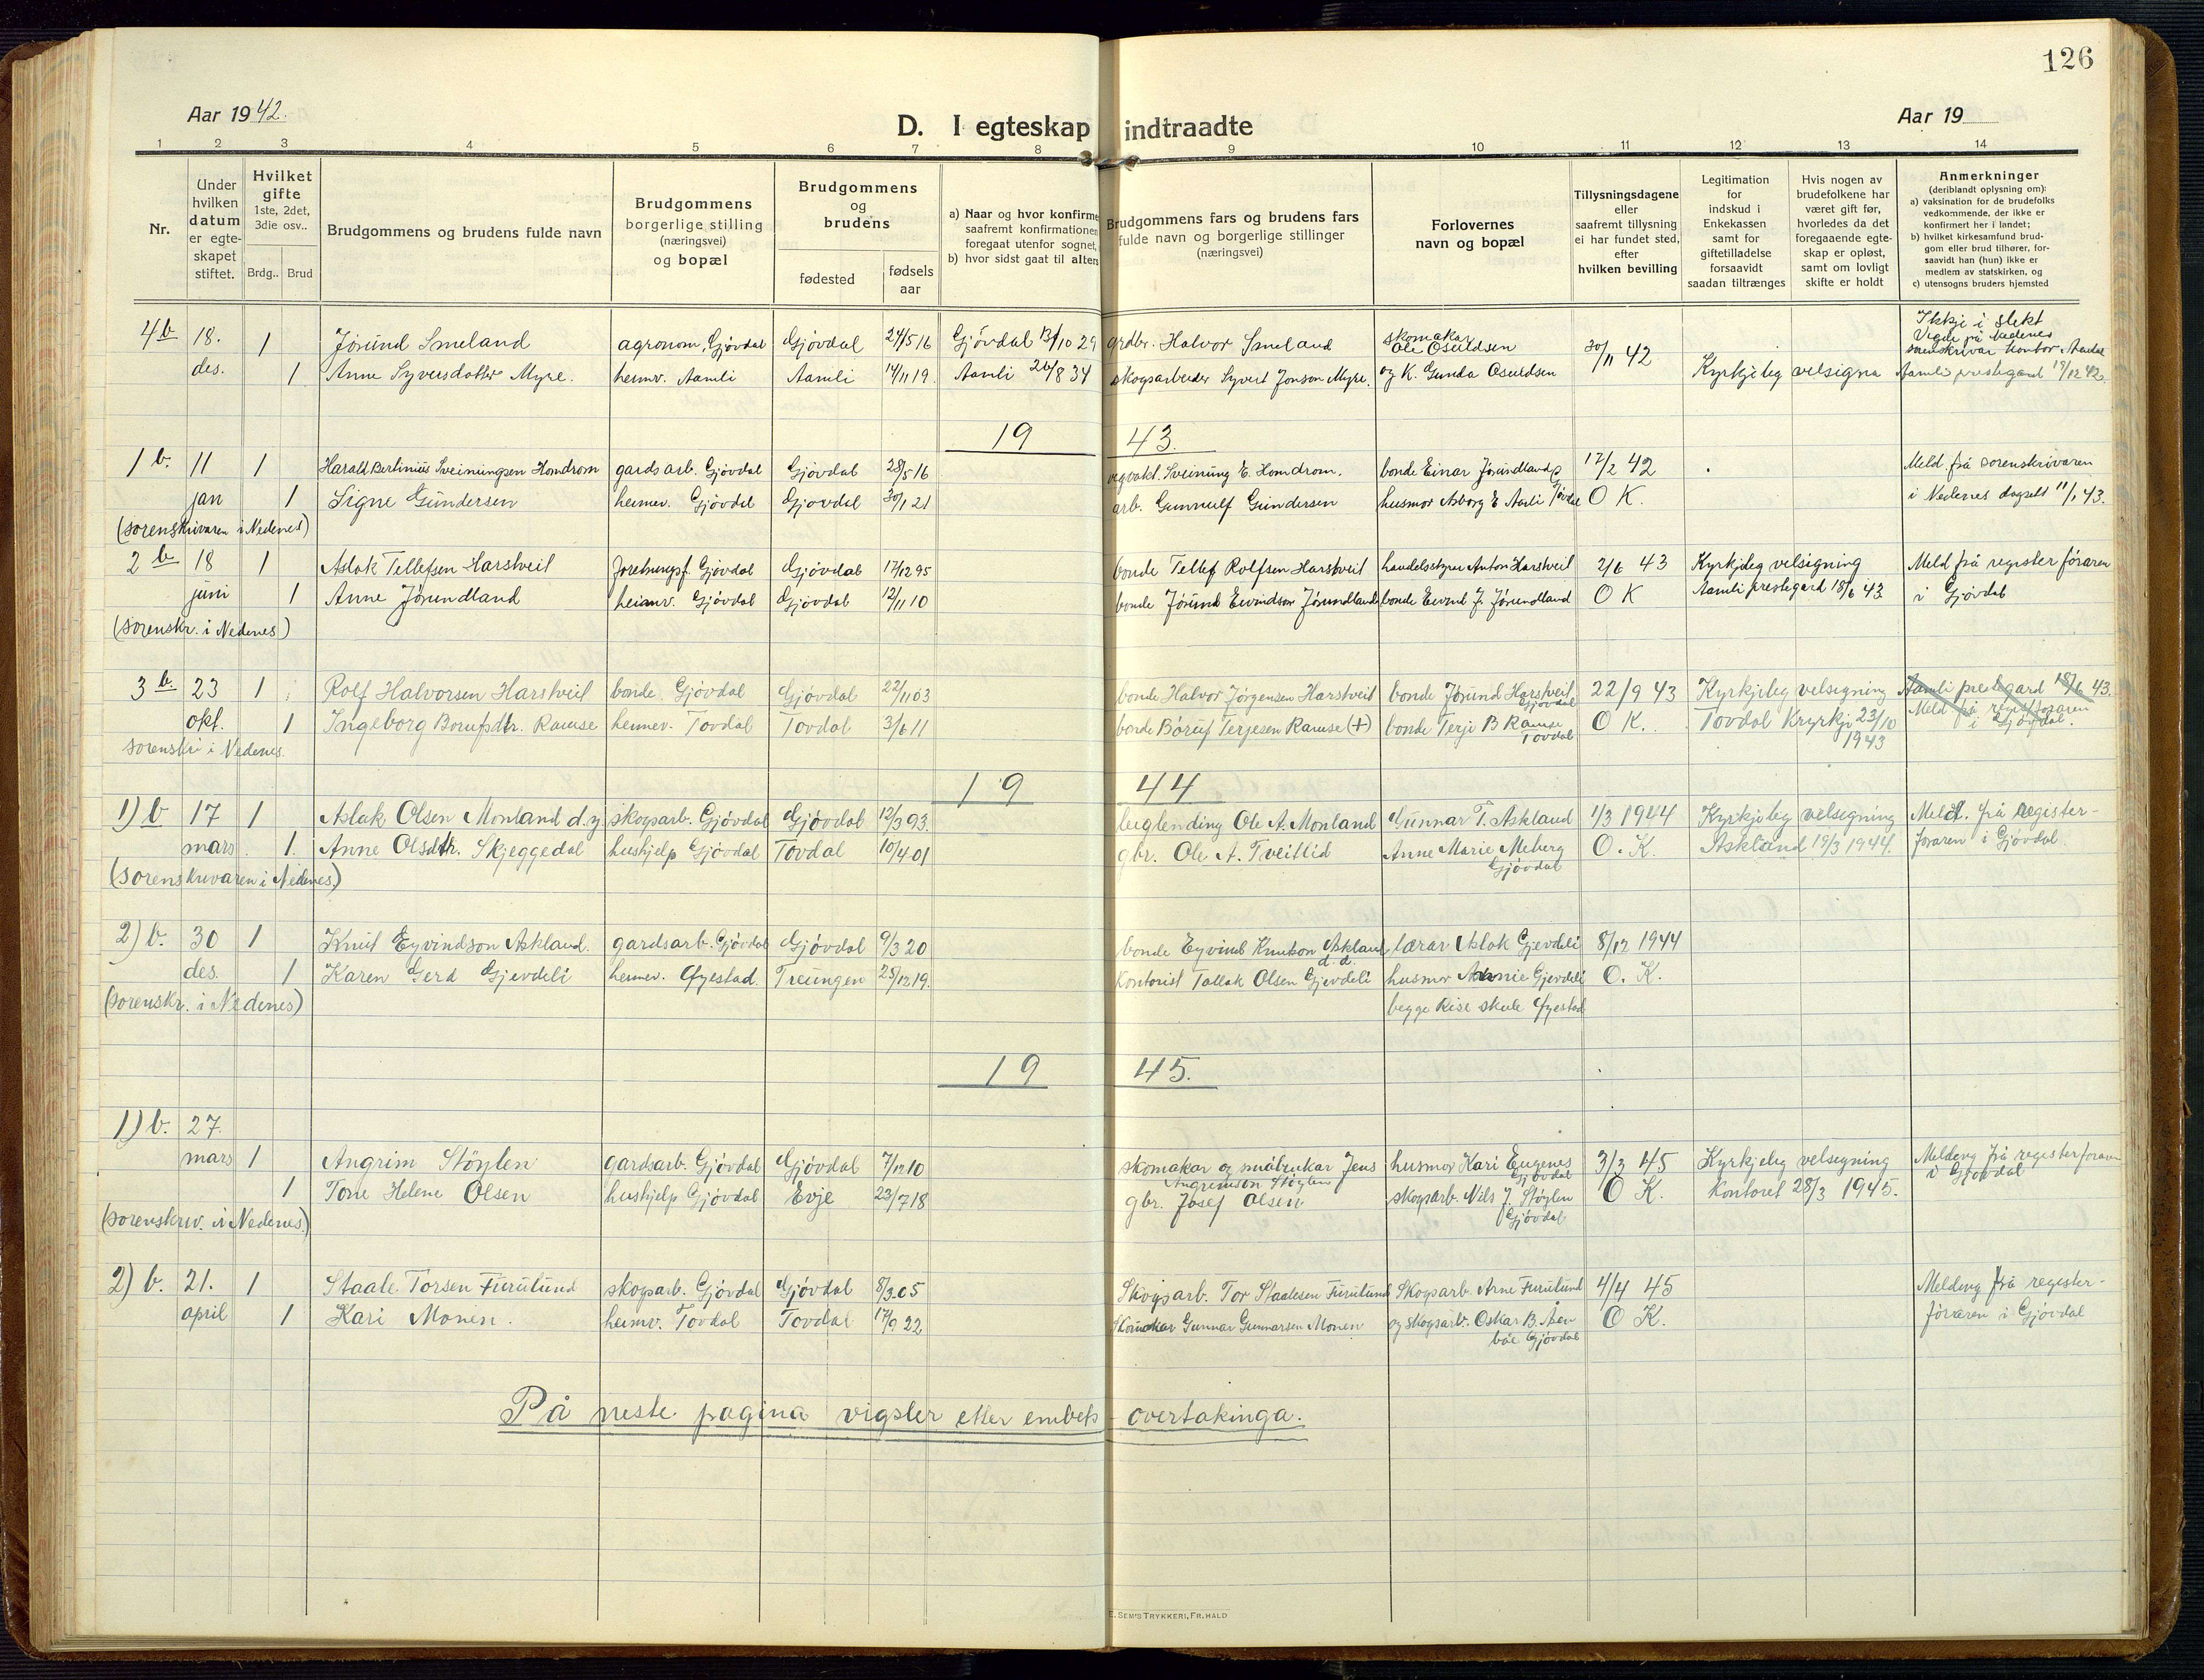 126
Aar 1942.
D. I egteskap indtraadte
Aar 19
1 2 3 4 5 6 7 8 9 10 11 12 13 14
Nr.
Under hvilken datum er egte-skapet stiftet.
Hvilket gifte 1ste, 2det, 3die osv..
Brdg.. Brud
Brudgommens og brudens fulde navn
Brudgommens borgerlige stilling (næringsvei) og bopæl
Brudgommens og brudens
fødested
fødsels aar
a) Naar og hvor konfirme
saafremt konfirmationen
foregaat utenfor sognet,
b) hvor sidst gaat til alters
Brudgommens fars og brudens fars
fulde navn og borgerlige stillinger
(næringsvei)
Forlovernes
navn og bopæl
Tillysningsdagene
eller
saafremt tillysning
ei har fundet sted,
efter
hvilken bevilling
Legitimation
for
indskud i
Enkekassen
samt for
giftetilladelse
forsaavidt
saadan tiltrænges
Hvis nogen av
brudefolkene har
været gift før,
hvorledes da det
foregaaende egte-
skap er opløst,
samt om lovligt
skifte er holdt
Anmerkninger
(deriblandt oplysning om):
a) vaksination for de brudefolks
vedkommende, der ikke er
konfirmert her i landet;
b) hvilket kirkesamfund brud-
gom eller brud tilhører, for-
saavidt han (hun) ikke er
medlem av statskirken, og
c) utensogns bruders hjemsted
4b 18. 1 Jørund Smeland agronom, Gjøvdal Gjøvdal 24/5 16 Gjøvdal 13/10 29 grdbr. Halvor Smeland skomakar Ole Osuldsen 30/11 42 Ikkje i slekt
des. 1 Anne Syversdotter Myre. heimv. Aamli Aamli 14/11 19. Aamli 26/8 34 skogsarbeider Syvert Jonson Myre. og K. Gunda Osuldsen Kyrkjeleg velsigna Vigde på Nedenes sorenskrivar kontor, Arendal
Aamli prestegard 19/12 42.
19 43.
1 b. 11 1 Harald Bertinius Sveinungsen Homdrom gardsarb. Gjøvdal Gjøvdal 28/5 16 vegvakt. Sveinung E. Homdrom. bonde Einar Jørundland 17/2 42 Meld. frå sorenskrivaren
jan 1 Signe Gundersen heimv. Gjøvdal Gjøvdal 30/1 21 arb. Gunnulf Gundersen husmor Asborg E Aamli O K. i Nedenes dagsett 11/1 43.
(sorenskrivaren i Nedenes)
2 b 18 1 Aslak Tellefsen Harstveit Gjøvdal Gjøvdal 17/12 95 bonde Tellef Rolfsen Harstveit handelsstyrer Anton Harstveit 2/6 43 Kyrkjeleg velsigning Meld frå register føraren
juni 1 Anne Jørundland heimv. Gjøvdal Gjøvdal 12/11 10 bonde Jørund Eivindson Jørundland bonde Eivind J. Jørundland O K Aamli prestegard 18/6 43 i Gjøvdal
(sorenskr. i Nedenes)
3 b. 23 1 Rolf Halvorsen Harstveit bonde. Gjøvdal Gjøvdal 22/11 03 bonde Halvor Jørgensen Harstveit bonde Jørund Harstveit Gjøvdal 22/9 43 Kyrkjeleg velsigning Aamli prestegard 18/6 43.
okt. 1 Ingeborg Borufsdtr. Ramse heimv. Tovdal Tovdal 3/6 11 bonde Børuf Terjesen Ramse (+) bonde Terje B Ramse Tovdal O K. Tovdal Kyrkje 23/10 1943 Meld frå regist.føraren i Gjøvdal.
sorenskr i Nedenes.
19 44
1) b 17 1 Aslak Olsen Monland d.y skogsarb. Gjøvdal Gjøvdal 12/3 93. Ole A. Monland Gunnar T. Askland 1/3 1944 Kyrkjeleg velsigning Meld. frå register-
mars. 1. Anne Olsdtr. Skjeggedal hushjelp Gjøvdal Tovdal 10/4 01 gbr. Ole A. Tveitlid Anne Marie Meberg Gjøvdal O. K. Askland 19/3 1944. føraren i Gjøvdal.
(sorenskrivaren i Nedenes.)
2) b. 30 1 Knut Eyvindson Askland. gardsarb. Gjøvdal Gjøvdal 9/3 20 bonde Eyvind Knutson Askland d.d. lærar Aslak Gjevdeli 8/12 1944
des. 1 Karen Gerd Gjevdeli heimv. Øyestad. Treungen 25/12 19. kontorist Tallak Olsen Gjevdeli husmor Annie Gjevdeli O. K.
(sorenskr. i Nedenes) begge Rise skule Øyestad
19 45.
1) b. 27.
mars 1 Angrim Støylen gardsarb. Gjøvdal Gjøvdal 7/12 10 skomakar og småbrukar Jens Angrimson Støylen husmor Kari Eugenes Gjøvdal 3/3 45 Kyrkjeleg velsigning Melding frå registerføraren i Gjøvdal
1 Tone Helene Olsen hushjelp Gjøvdal Evje 23/7 18 gbr. Josef Olsen skogsarb. Nils J. Støylen Gjøvdal O K. Kontoret 28/3 1945.
(sorenskriv. i Nedenes.)
2) b. 21. 1 Staale Torsen Furulund skogsarb. Gjøvdal Gjøvdal 8/3 05 Skogsarb. Tor Staalesen Furulund Skogsarb. Arne Furulund 4/4 45 Melding frå register-
april 1 Kari Monen. heimv. Tovdal Tovdal 17/9 22 Gunnar Gunnarsen Monen og skogsarb. Oskar B. Åen båe Gjøvdal O K. føraren i Gjøvdal
På neste pagina vigsler etter embets-overtakinga.
E. SEM'S TRYKKERI, FR.HALD